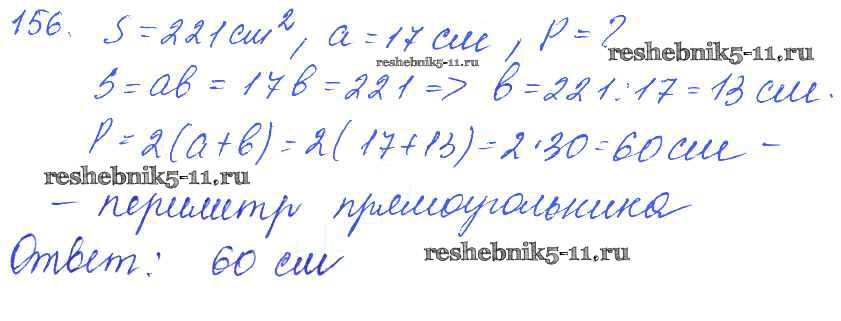 156. S = 221 см², a = 17 см, P = ?
reshebnik5-11.ru
reshebnik5-11.ru
S = ab = 17b = 221 => b = 221 : 17 = 13 см.
P = 2(a + b) = 2(17 + 13) = 2 · 30 = 60 см –
reshebnik5-11.ru
– периметр прямоугольника
Ответ: 60 см
reshebnik5-11.ru